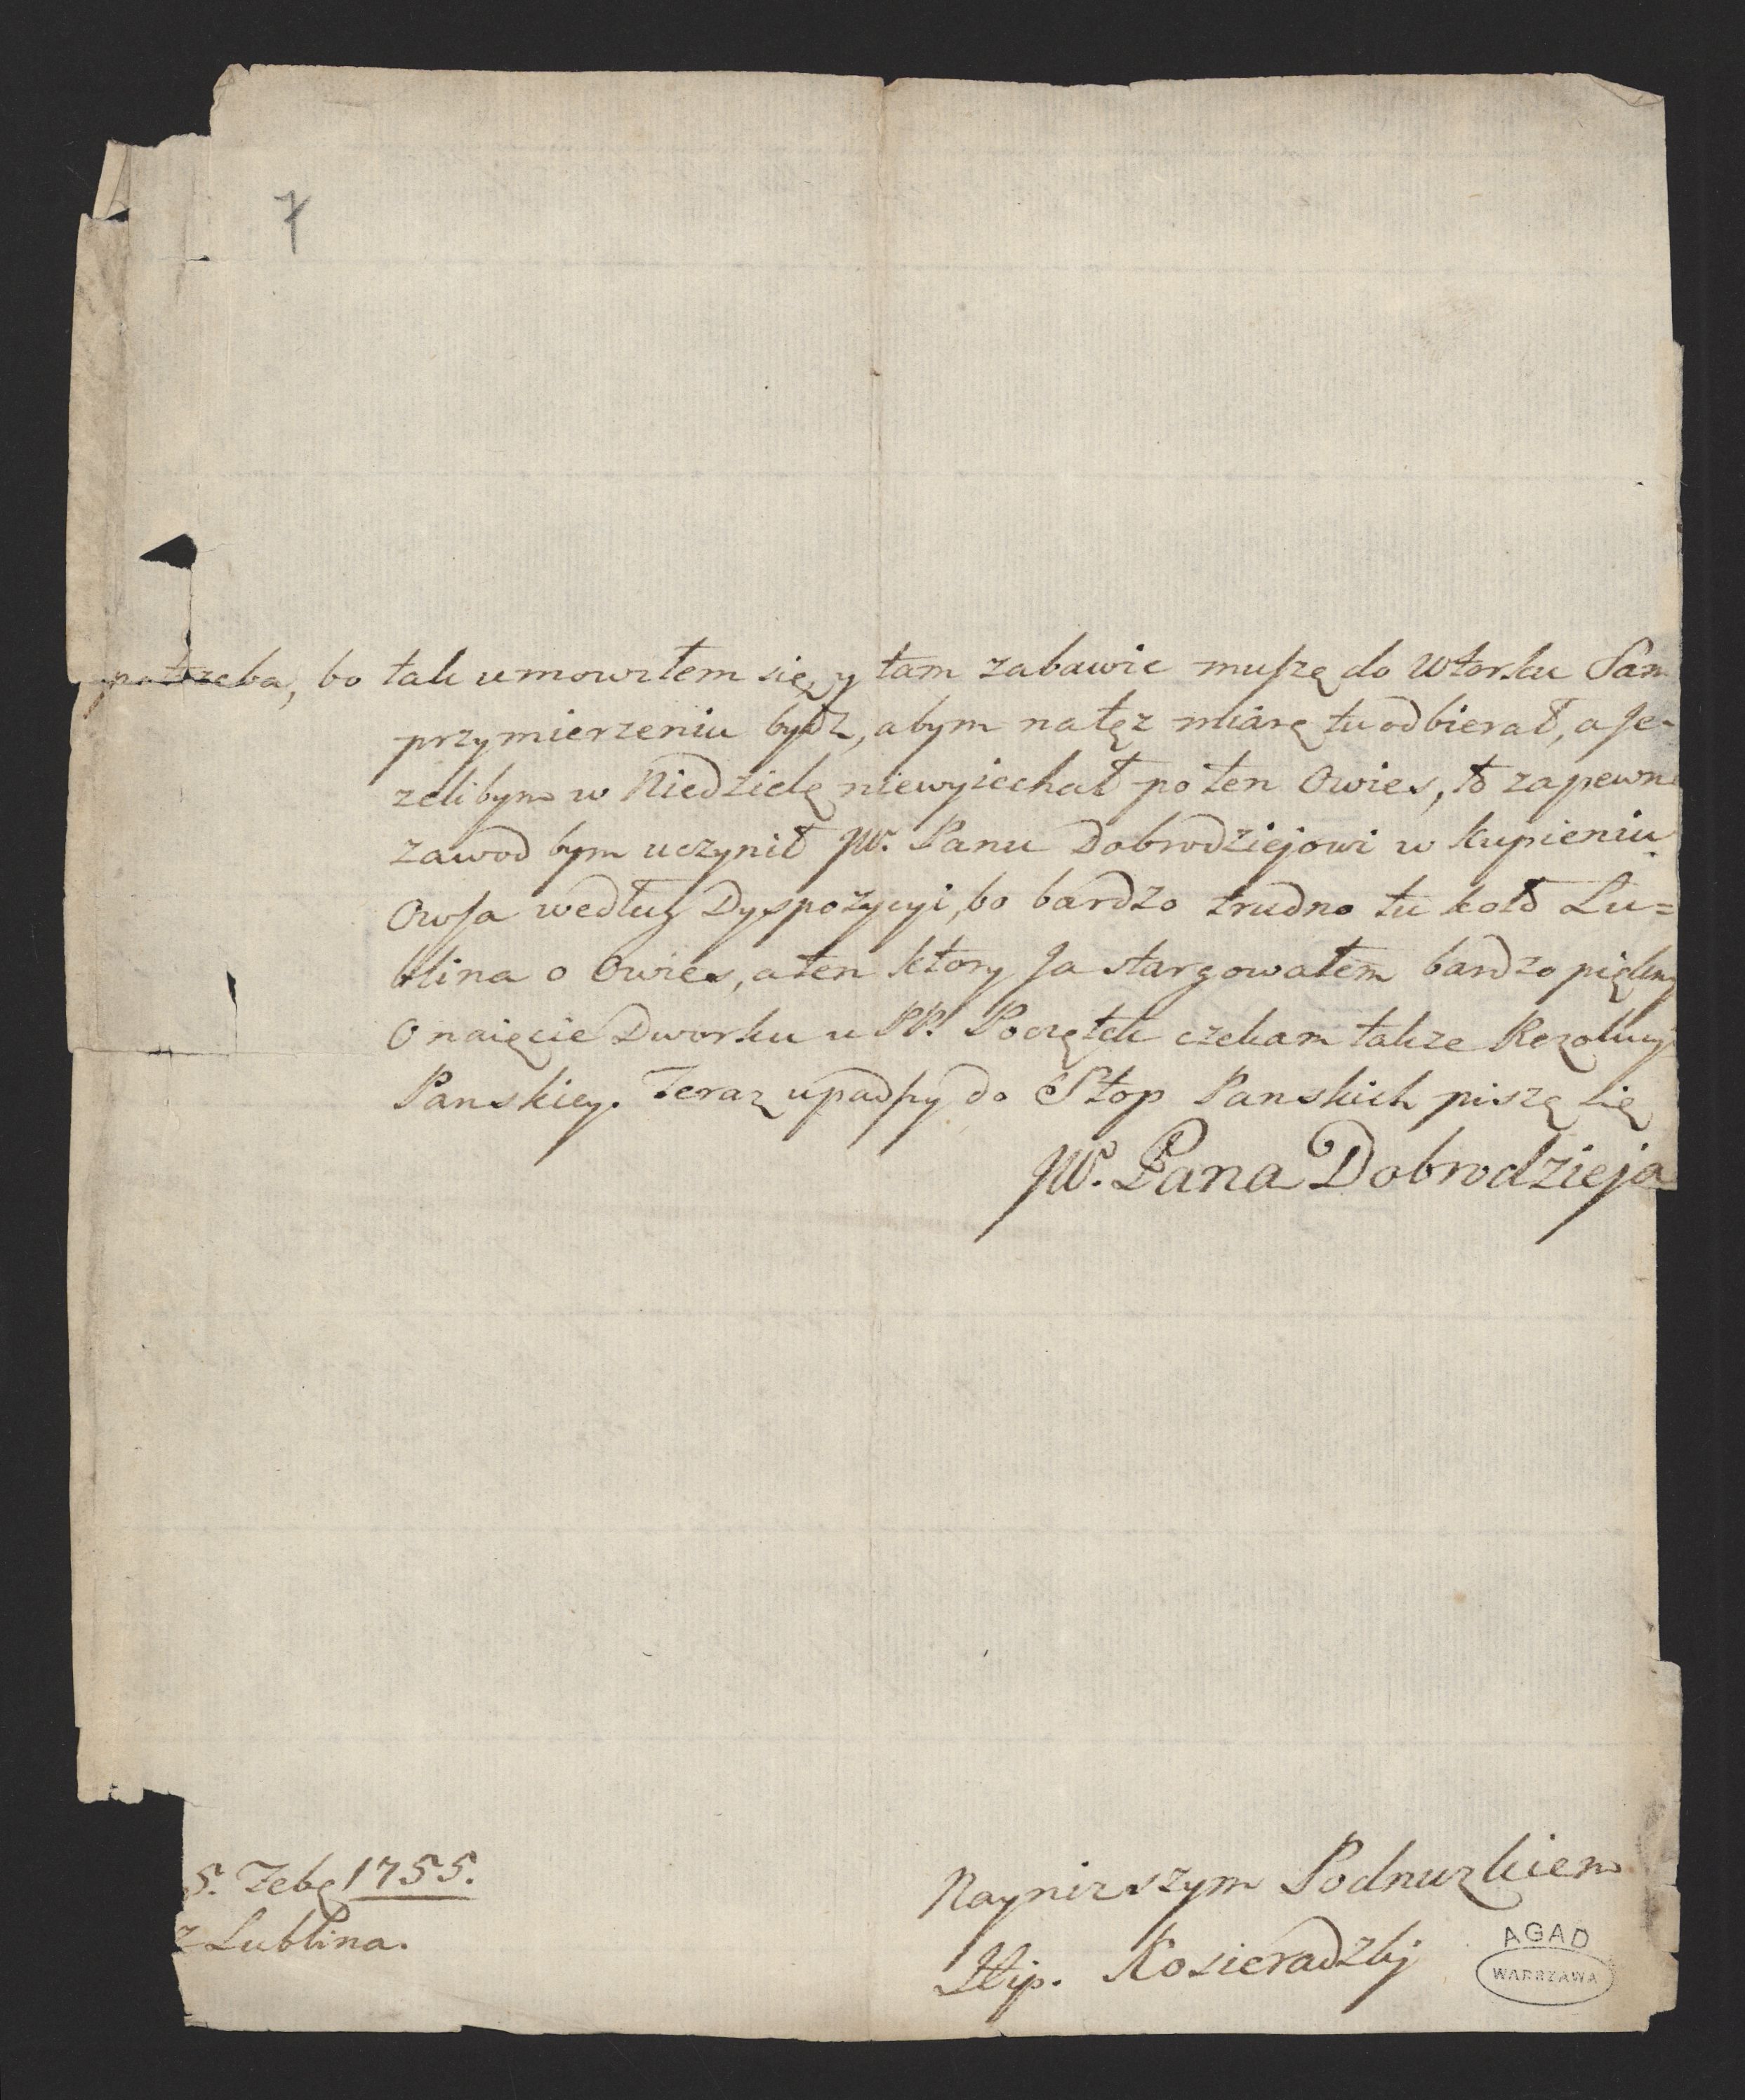 7
potrzeba, bo tak umowiłem się, y tam zabawic muszę do Wtorku Sam
przymierzeniu bydz, abym natęz miarę tu odbierał, a Je-
zelibym w Niedzielę niewyiechał po ten Owies, to zapewne
zawod bym uczynił JW. Panu Dobrodziejowi w kupieniu
Owsa według Dyspozycyi, bo bardzo trudno tu koło Lu=
blina o Owies, a ten ktory Ja stargowałem bardzo piękny
O naięcie Dworku u PP. czekam takze Rezolucyi
Panskiey. Teraz upadszy do Stop Panskich piszę się
JW. Pana Dobrodzieja
5. 1755.
z Lublina.
Nayniszszym Podnuzkiem
Hip. Kosieradzki
AGAD
WARSZAWA